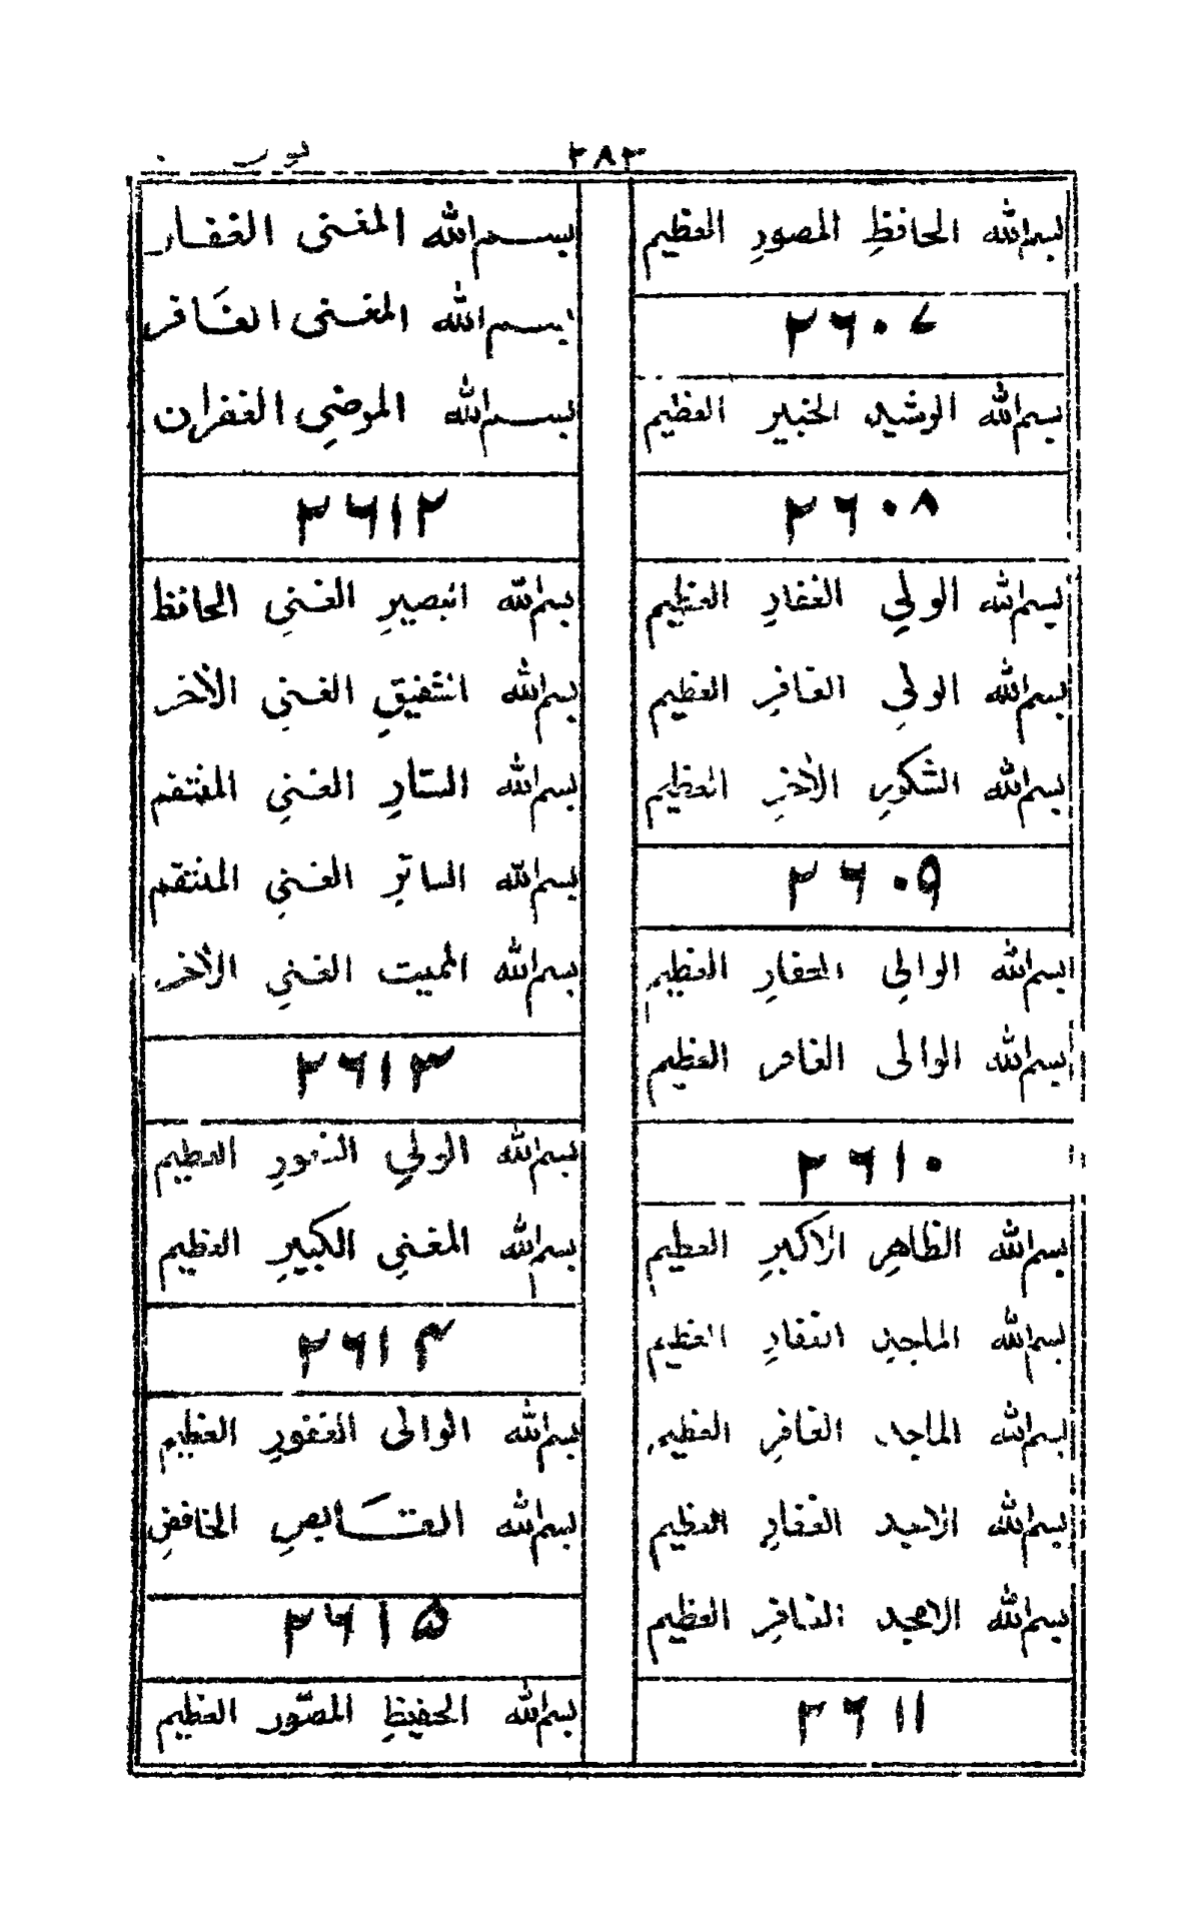 ٢٨٣
بسم الله الحافظِ المصورِ العظيم
٢٦٠٧
بسم الله الرشيد الخبير العظيم
٢٦٠٨
بسم الله الولي الغفارِ العظيم
بسم الله الولي الغافرِ العظيم
بسم الله الشكورِ الأخرِ العظيم
٢٦٠٩
بسم الله الوالي الغفارِ العظيم
بسم الله الوالى الغافر العظيم
٢٦١٠
بسم الله الظاهرِ الاكبرِ العظيم
بسم الله الماجد الغفارِ العظيم
بسم الله الماجد الغافرِ العظيم
بسم الله الغفارِ العظيم
بسم الله الامجد الغافرِ العظيم
٢٦١١
بسم الله المغنى الغفار
بسم الله المغنى الغَافر
بسم الله الغفران
٢٦١٢
بسم الله البصيرِ الغني الحافظ
بسم الله الشفيقِ الغني الأخر
بسم الله الستّارِ الغني المنتقم
بسم الله الساترِ الغني المنتقم
بسم الله المميت الغني الأخر
٢٦١٣
بسم الله الولي العظيم
بسم الله المغني الكبيرِ العظيم
٢٦١٤
بسم الله الوالى الغفورِ العظيم
بسم الله القَابضِ الخافضِ
٢٦١٥
بسم الله الحفيظِ المصّور العظيم